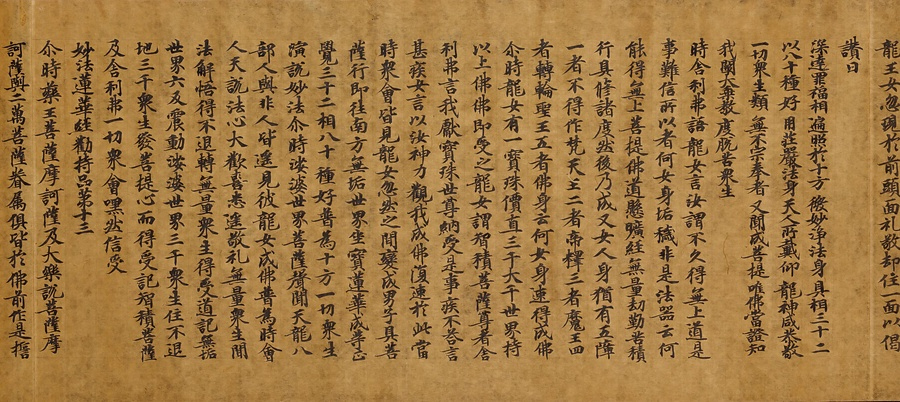 龍王女忽現於前頭面礼敬却住一面以偈
讃曰
深達罪福相遍照於十方微妙浄法身具相三十二
以八十種好用荘嚴法身天人所戴仰龍神咸恭敬
一切衆生類無不宗奉者又聞成菩提唯佛當證知
我闡大乗教度脱苦衆生
時舍利弗語龍女言汝謂不久得無上道是
事難信所以者何女身垢穢非是法器云何
能得無上菩提佛道懸曠経無量劫勤苦積
行具修諸度然後乃成又女人身猶有五障
一者不得作梵天王二者帝釋三者魔王四
者轉輪聖王五者佛身云何女身速得成佛
尒時龍女有一寶珠價直三千大千世界持
以上佛佛即受之龍女謂智積菩薩尊者舍
利弗言我獻寶珠世尊納受是事疾不荅言
甚疾女言以汝神力觀我成佛復速於此當
時衆會皆見龍女忽然之間變成男子具菩
薩行即往南方無垢世界坐寶蓮華成等正
覺三十二相八十種好普為十方一切衆生
演說妙法尒時娑婆世界菩薩聲聞天龍八
部人與非人皆遥見彼龍女成佛普為時會
人天說法心大歡喜悉遥敬礼無量衆生聞
法解悟得不退轉無量衆生得受道記無垢
世界六反震動娑婆世界三千衆生住不退
地三千衆生發菩提心而得受記智積菩薩
及舍利弗一切衆會嘿然信受
妙法蓮華経勸持品第十三
尒時藥王菩薩摩訶薩及大樂說菩薩摩
訶薩與二萬菩薩眷屬俱皆於佛前作是誓